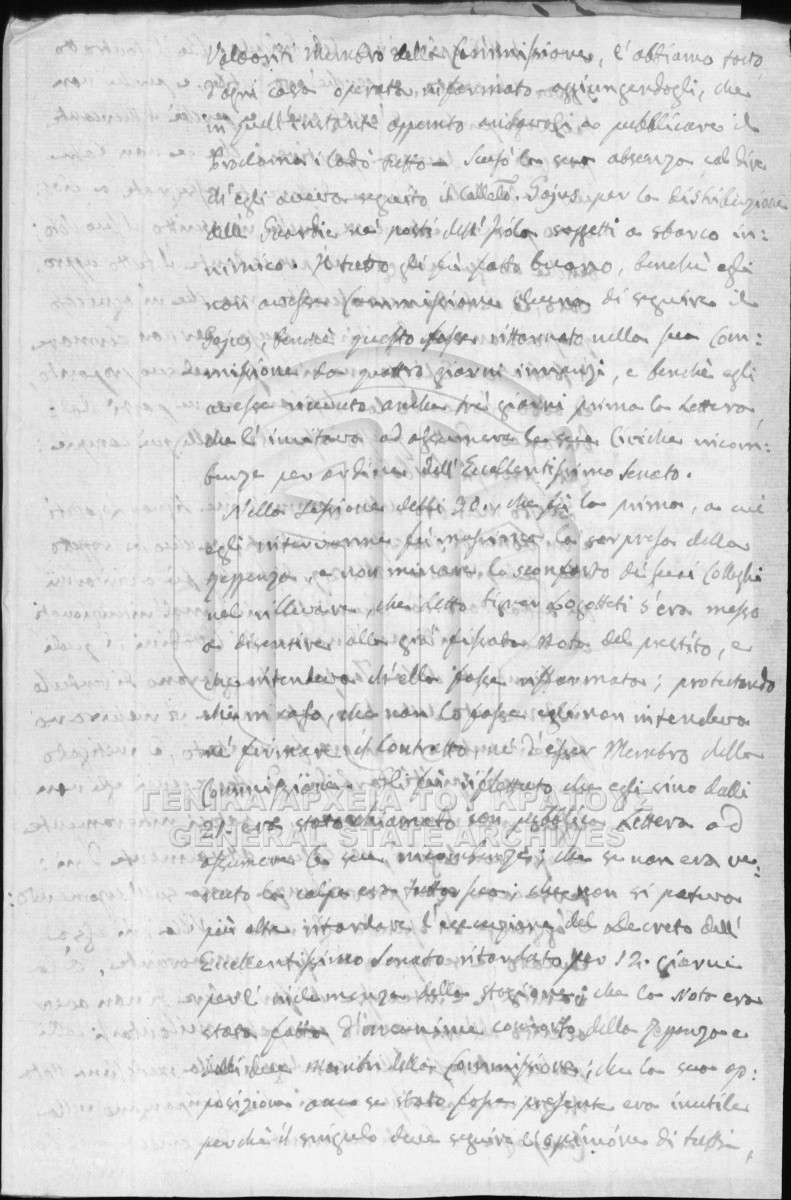 Valsositi Membro della Commissione, l'abbiamo tosto
d'ogni cosa operata informato aggiungendogli, che
in quell'instante appunto andavasi a pubblicare il
Proclama: lodò tutto — Scusò la sua absenza col dire
ch'egli aveva seguito il Gajus per la distribuzione
delle Guardie ne' posti dell'Isola soggetti a sbarco in:
nimico. Il tutto gli fù fatto buono, benchè egli
non avesse Commissione alcuna di seguire il
Gajus, benchè questo fosse rittornato nella sua Com:
missione da quattro giorni innanzi, e benchè egli
avesse ricevuto anche trè giorni prima la Lettera,
che l'invitava ad assumere la sua Civiche incom:
benze per ordine dell'Eccellentissimo Senato.
Nella Sessione delli 28. che fù la prima, a cui
egli intervenne fù massima la sorpresa della
Reggenza, e non minore lo sconforto de' suoi Colleghi
nel rillevare, che detto Sigr. s'era messo
a disentire alla già fissata Nota del prestito, e
che intendeva ch'ella fosse riformata; protestando
che in caso, che non lo fosse egli non intendeva
nè firmare il Contratto nè d'esser Membro della
Commissione. Gli fù riflettuto che egli sino dalli
21. era stato chiamato con pubblica Lettera ad
assumere le sue incombenze; che se non era ve:
nuto la colpa era tutta sua; che non si poteva
più oltre ritardare l'esecuzione del Decreto dell'
Eccellentissimo Senato ritardato per 12. giorni
per l'inclemenza della stagione; che la Nota era
stata fatta d'unanime consenso della Reggenza e
delli due Membri della Commissione; che la sua op:
posizione anco se stato fosse presente era inutile
perchè il singulo deve seguire l'opinione di tutti,
ΓΕΝΙΚΑ ΑΡΧΕΙΑ ΤΟΥ ΚΡΑΤΟΥΣ
GENERAL STATE ARCHIVES